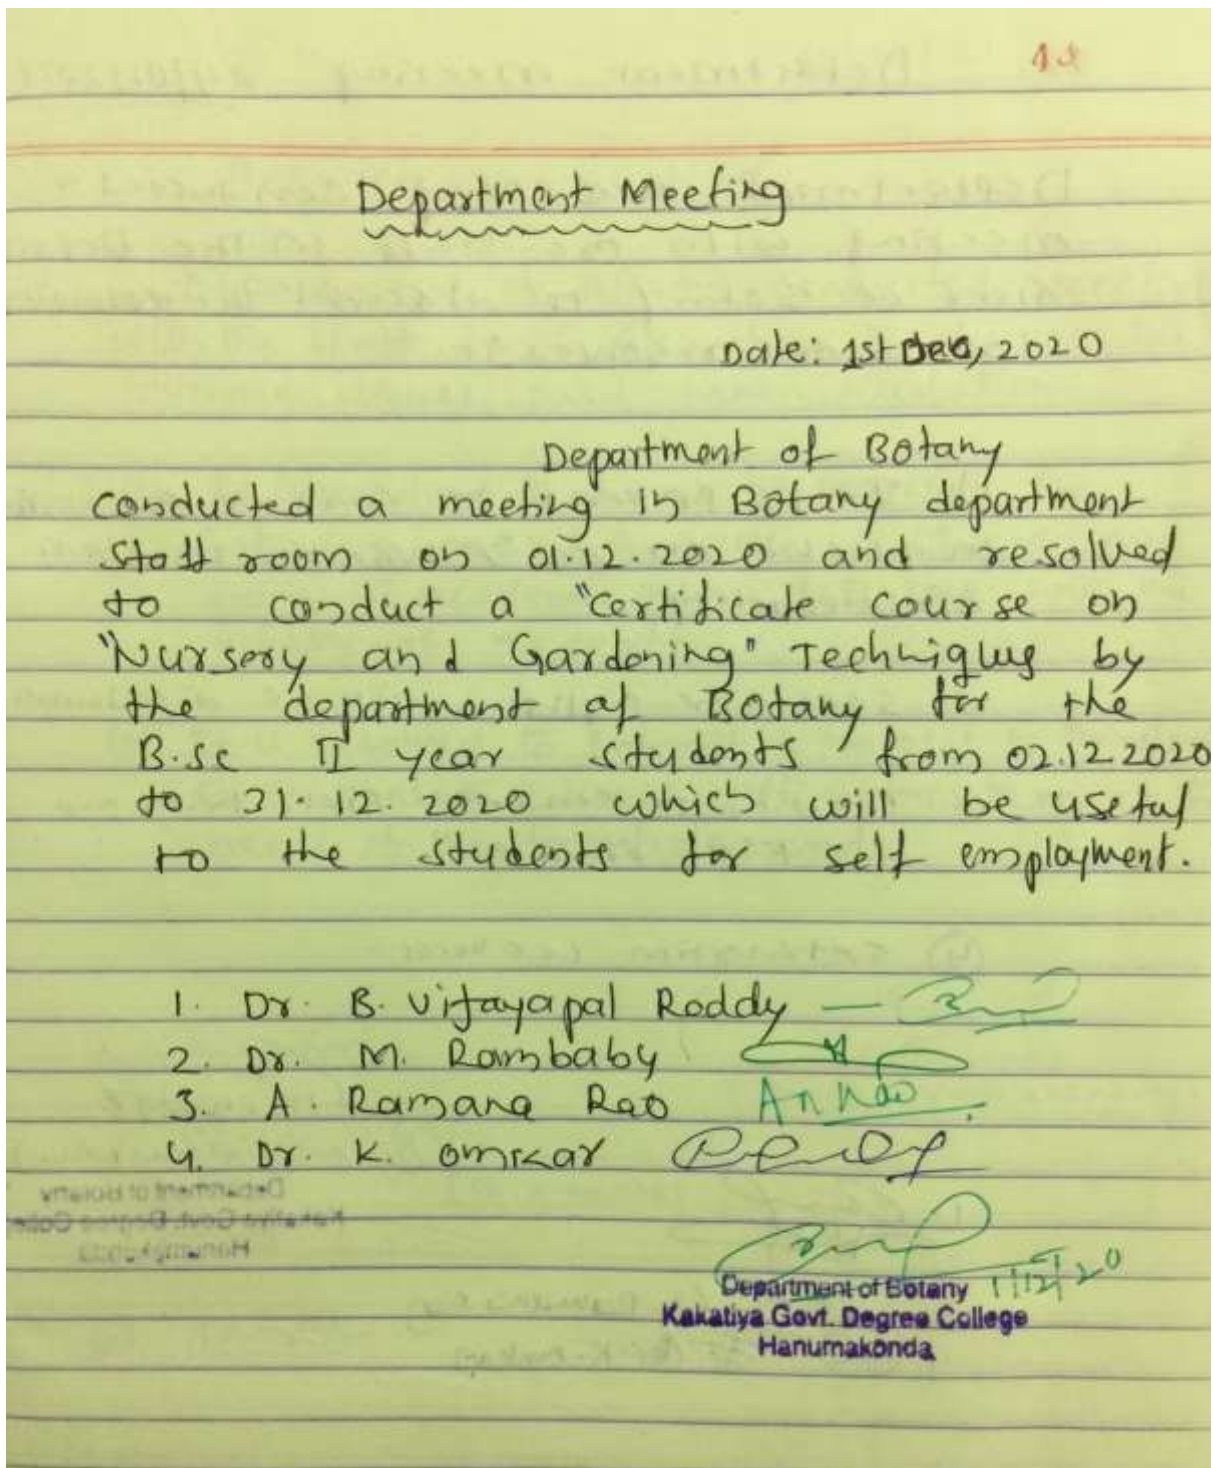 Department Meeting
Date: 1st Dec, 2020
Department of Botany
conducted a meeting in Botany department
Staff room on 01.12.2020 and resolved
to conduct a "Certificate course on
"Nursery and Gardening" Techniques by
the department of Botany for the
B.Sc II year students from 02.12.2020
to 31.12.2020 which will be useful
to the students for self employment.
1. Dr. B. Vijayapal Reddy —
2. Dr. M. Rambabu
3. A. Ramana Rao
4. Dr. K. Omkar
1/12/20
Department of Botany
Kakatiya Govt. Degree College
Hanumakonda